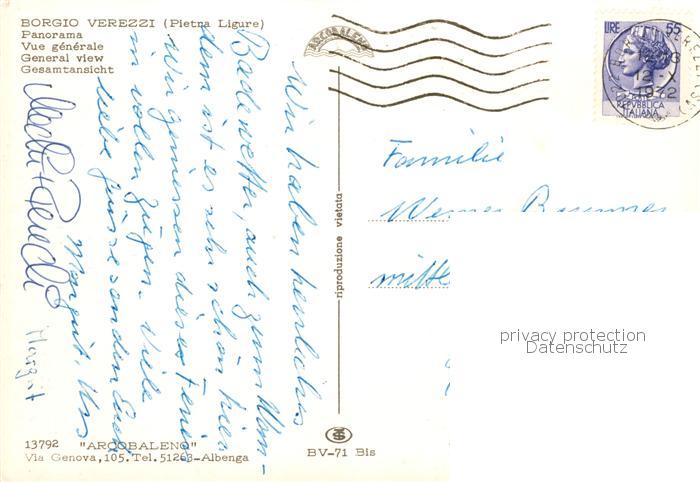 BORGIO VEREZZI (Pietra Ligure)
Panorama
Vue générale
General view
Gesamtansicht
ARCOBALENO
LIRE 55
REPVBBLICA
ITALIANA
1972
Wir haben herrliches
Badewetter, auch zum Wan-
dern ist es sehr schön hier.
Wir geniessen dieses Ferien
in vollen Zügen. Viele
liebe Grüsse senden Euch
Margrit, Urs
Margrit
Familie
Werner
riproduzione vietata
privacy protection
Datenschutz
13792 "ARCOBALENO"
Via Genova, 105. Tel. 51263-Albenga
BV-71 Bis